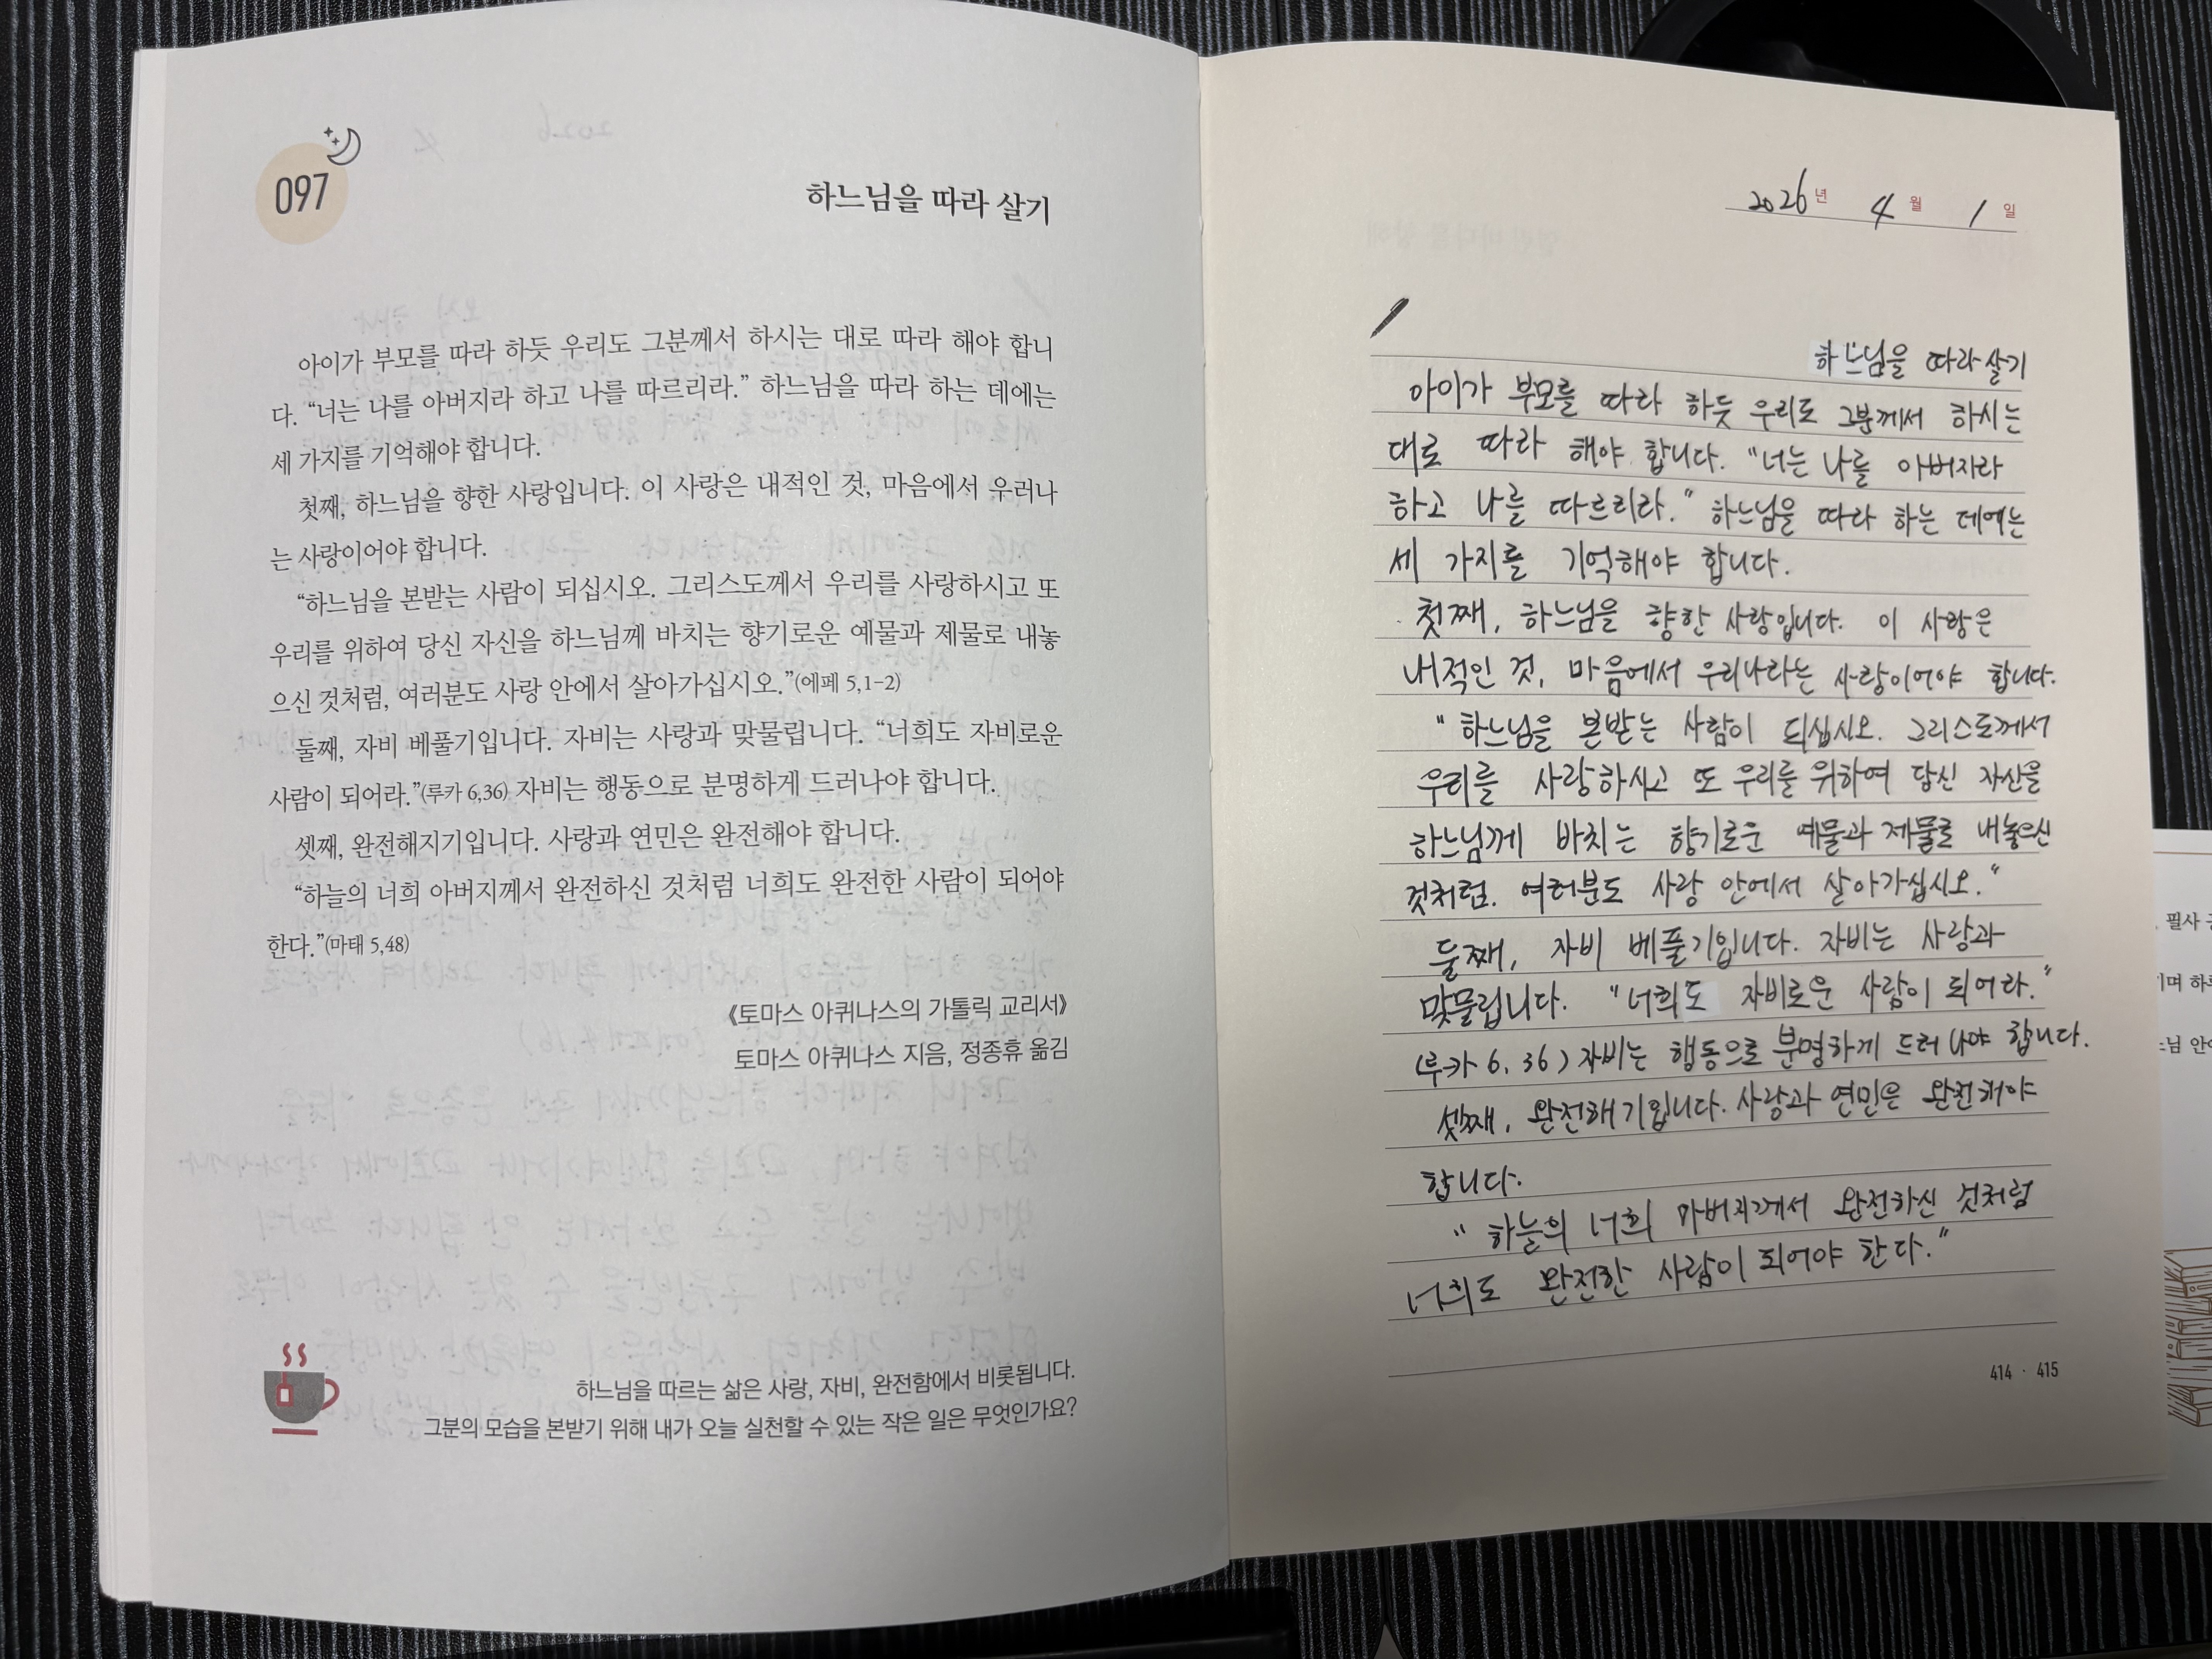 097
하느님을 따라 살기
아이가 부모를 따라 하듯 우리도 그분께서 하시는 대로 따라 해야 합니
다. “너는 나를 아버지라 하고 나를 따르리라.” 하느님을 따라 하는 데에는
세 가지를 기억해야 합니다.
첫째, 하느님을 향한 사랑입니다. 이 사랑은 내적인 것, 마음에서 우러나
는 사랑이어야 합니다.
“하느님을 본받는 사람이 되십시오. 그리스도께서 우리를 사랑하시고 또
우리를 위하여 당신 자신을 하느님께 바치는 향기로운 예물과 제물로 내놓
으신 것처럼, 여러분도 사랑 안에서 살아가십시오.”(에페 5,1-2)
둘째, 자비 베풀기입니다. 자비는 사랑과 맞물립니다. “너희도 자비로운
사람이 되어라.”(루카 6,36) 자비는 행동으로 분명하게 드러나야 합니다.
셋째, 완전해지기입니다. 사랑과 연민은 완전해야 합니다.
“하늘의 너희 아버지께서 완전하신 것처럼 너희도 완전한 사람이 되어야
한다.”(마태 5,48)
《토마스 아퀴나스의 가톨릭 교리서》
토마스 아퀴나스 지음, 정종휴 옮김
하느님을 따르는 삶은 사랑, 자비, 완전함에서 비롯됩니다.
그분의 모습을 본받기 위해 내가 오늘 실천할 수 있는 작은 일은 무엇인가요?
2026년 4월 1일
하느님을 따라 살기
아이가 부모를 따라 하듯 우리도 그분께서 하시는
대로 따라 해야 합니다. “너는 나를 아버지라
하고 나를 따르리라.” 하느님을 따라 하는 데에는
세 가지를 기억해야 합니다.
첫째, 하느님을 향한 사랑입니다. 이 사랑은
내적인 것, 마음에서 우러나라는 사랑이어야 합니다.
“하느님을 본받는 사람이 되십시오. 그리스도께서
우리를 사랑하시고 또 우리를 위하여 당신 자신을
하느님께 바치는 향기로운 예물과 제물로 내놓으신
것처럼. 여러분도 사랑 안에서 살아가십시오.”
둘째, 자비 베풀기입니다. 자비는 사랑과
맞물립니다. “너희도 자비로운 사람이 되어라.”
(루카 6, 36) 자비는 행동으로 분명하게 드러나야 합니다.
셋째, 완전해기입니다. 사랑과 연민은 완전해야
합니다.
“하늘의 너희 아버지께서 완전하신 것처럼
너희도 완전한 사람이 되어야 한다.”
414 · 415
필사
며 하루